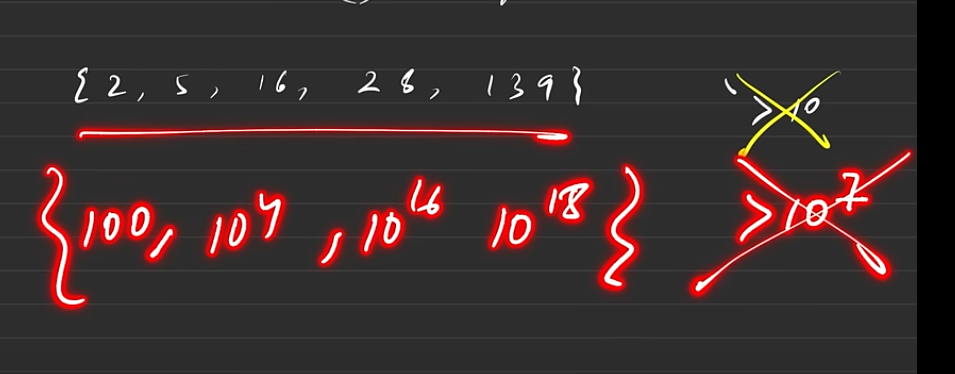 { 2, 5, 16, 28, 139 } > 10
{ 100, 10⁴, 10¹⁶ 10¹⁸ } > 10⁷